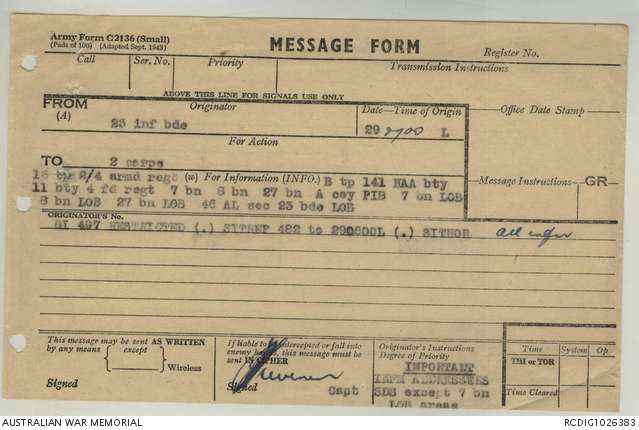 Army Form C2136 (Small)
(Pads of 100) (Adapted Sept. 1943)
MESSAGE FORM
Register No.
Call Ser. No. Priority Transmission Instructions
ABOVE THIS LINE FOR SIGNALS USE ONLY
FROM
(A)
Originator
Date—Time of Origin
Office Date Stamp
23 inf bde
29 L
For Action
TO 2 corps
2/4 armd regt (w) For Information (INFO.) B tp 141 HAA bty
11 bty 4 fd regt 7 bn 8 bn 27 bn A coy PIB 7 bn LOB
8 bn LOB 27 bn LOB 46 AL sec 23 bde LOB
Message Instructions GR
ORIGINATOR'S No.
GI 497 RESTRICTED (.) SITREP 482 to 290600L (.) SITHOR
This message may be sent AS WRITTEN
by any means except
Wireless
Signed
If liable to be intercepted or fall into
enemy hands, this message must be
sent IN CIPHER
Signed
Capt
Originator's Instructions
Degree of Priority
IMPORTANT
ADDRESSEES
SDS except 7 bn
LOB areas
Time System Op
THI or TOR
Time Cleared
AUSTRALIAN WAR MEMORIAL
RCDIG1026383